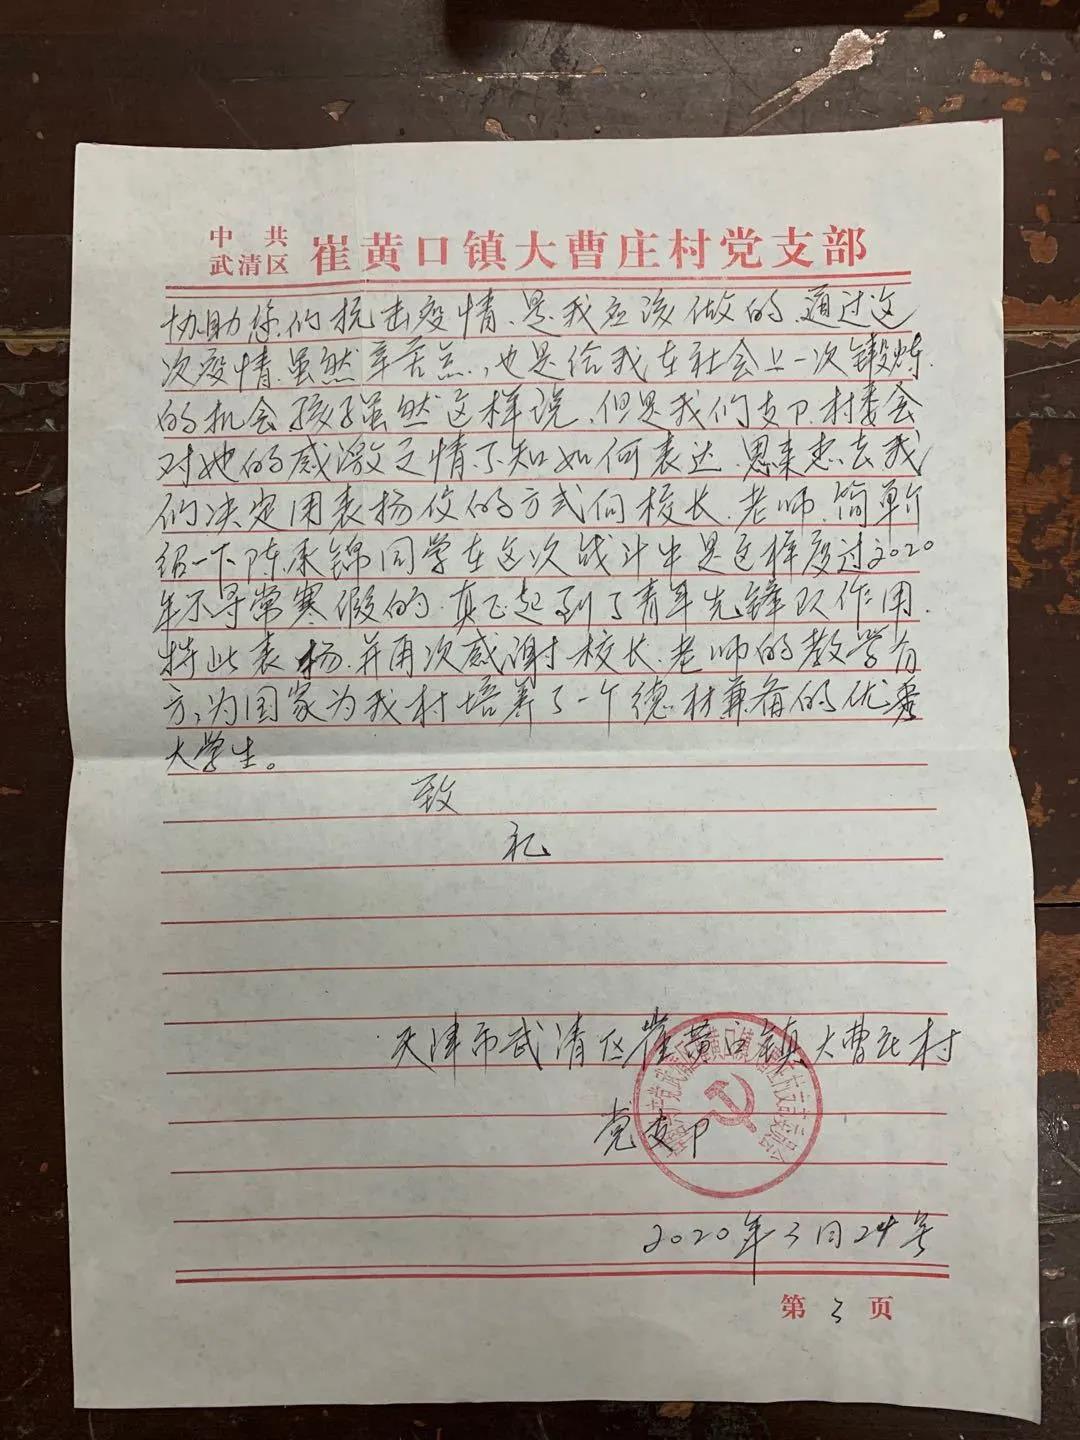 中共
武清区 崔黄口镇大曹庄村党支部
协助你们抗击疫情、是我应该做的、通过这
次疫情.虽然辛苦点、也是给我在社会上一次锻炼.
的机会孩子虽然这样说.但是我们支卩.村委会
对她的感激之情.不知如何表达.思来想去我
们决定用表扬仪的方式向校长.老师.简单介
绍一下陈承锦同学在这次战斗中是这样度过2020
年不寻常寒假的.真正起到了青年先锋队作用.
特此表扬.并再次感谢校长.老师的教学有
方,为国家为我村培养了一个德材兼备的优秀
大学生。
致
礼
天津市武清区崔黄口镇大曹庄村
党支卩
2020年3月24号
第 3 页